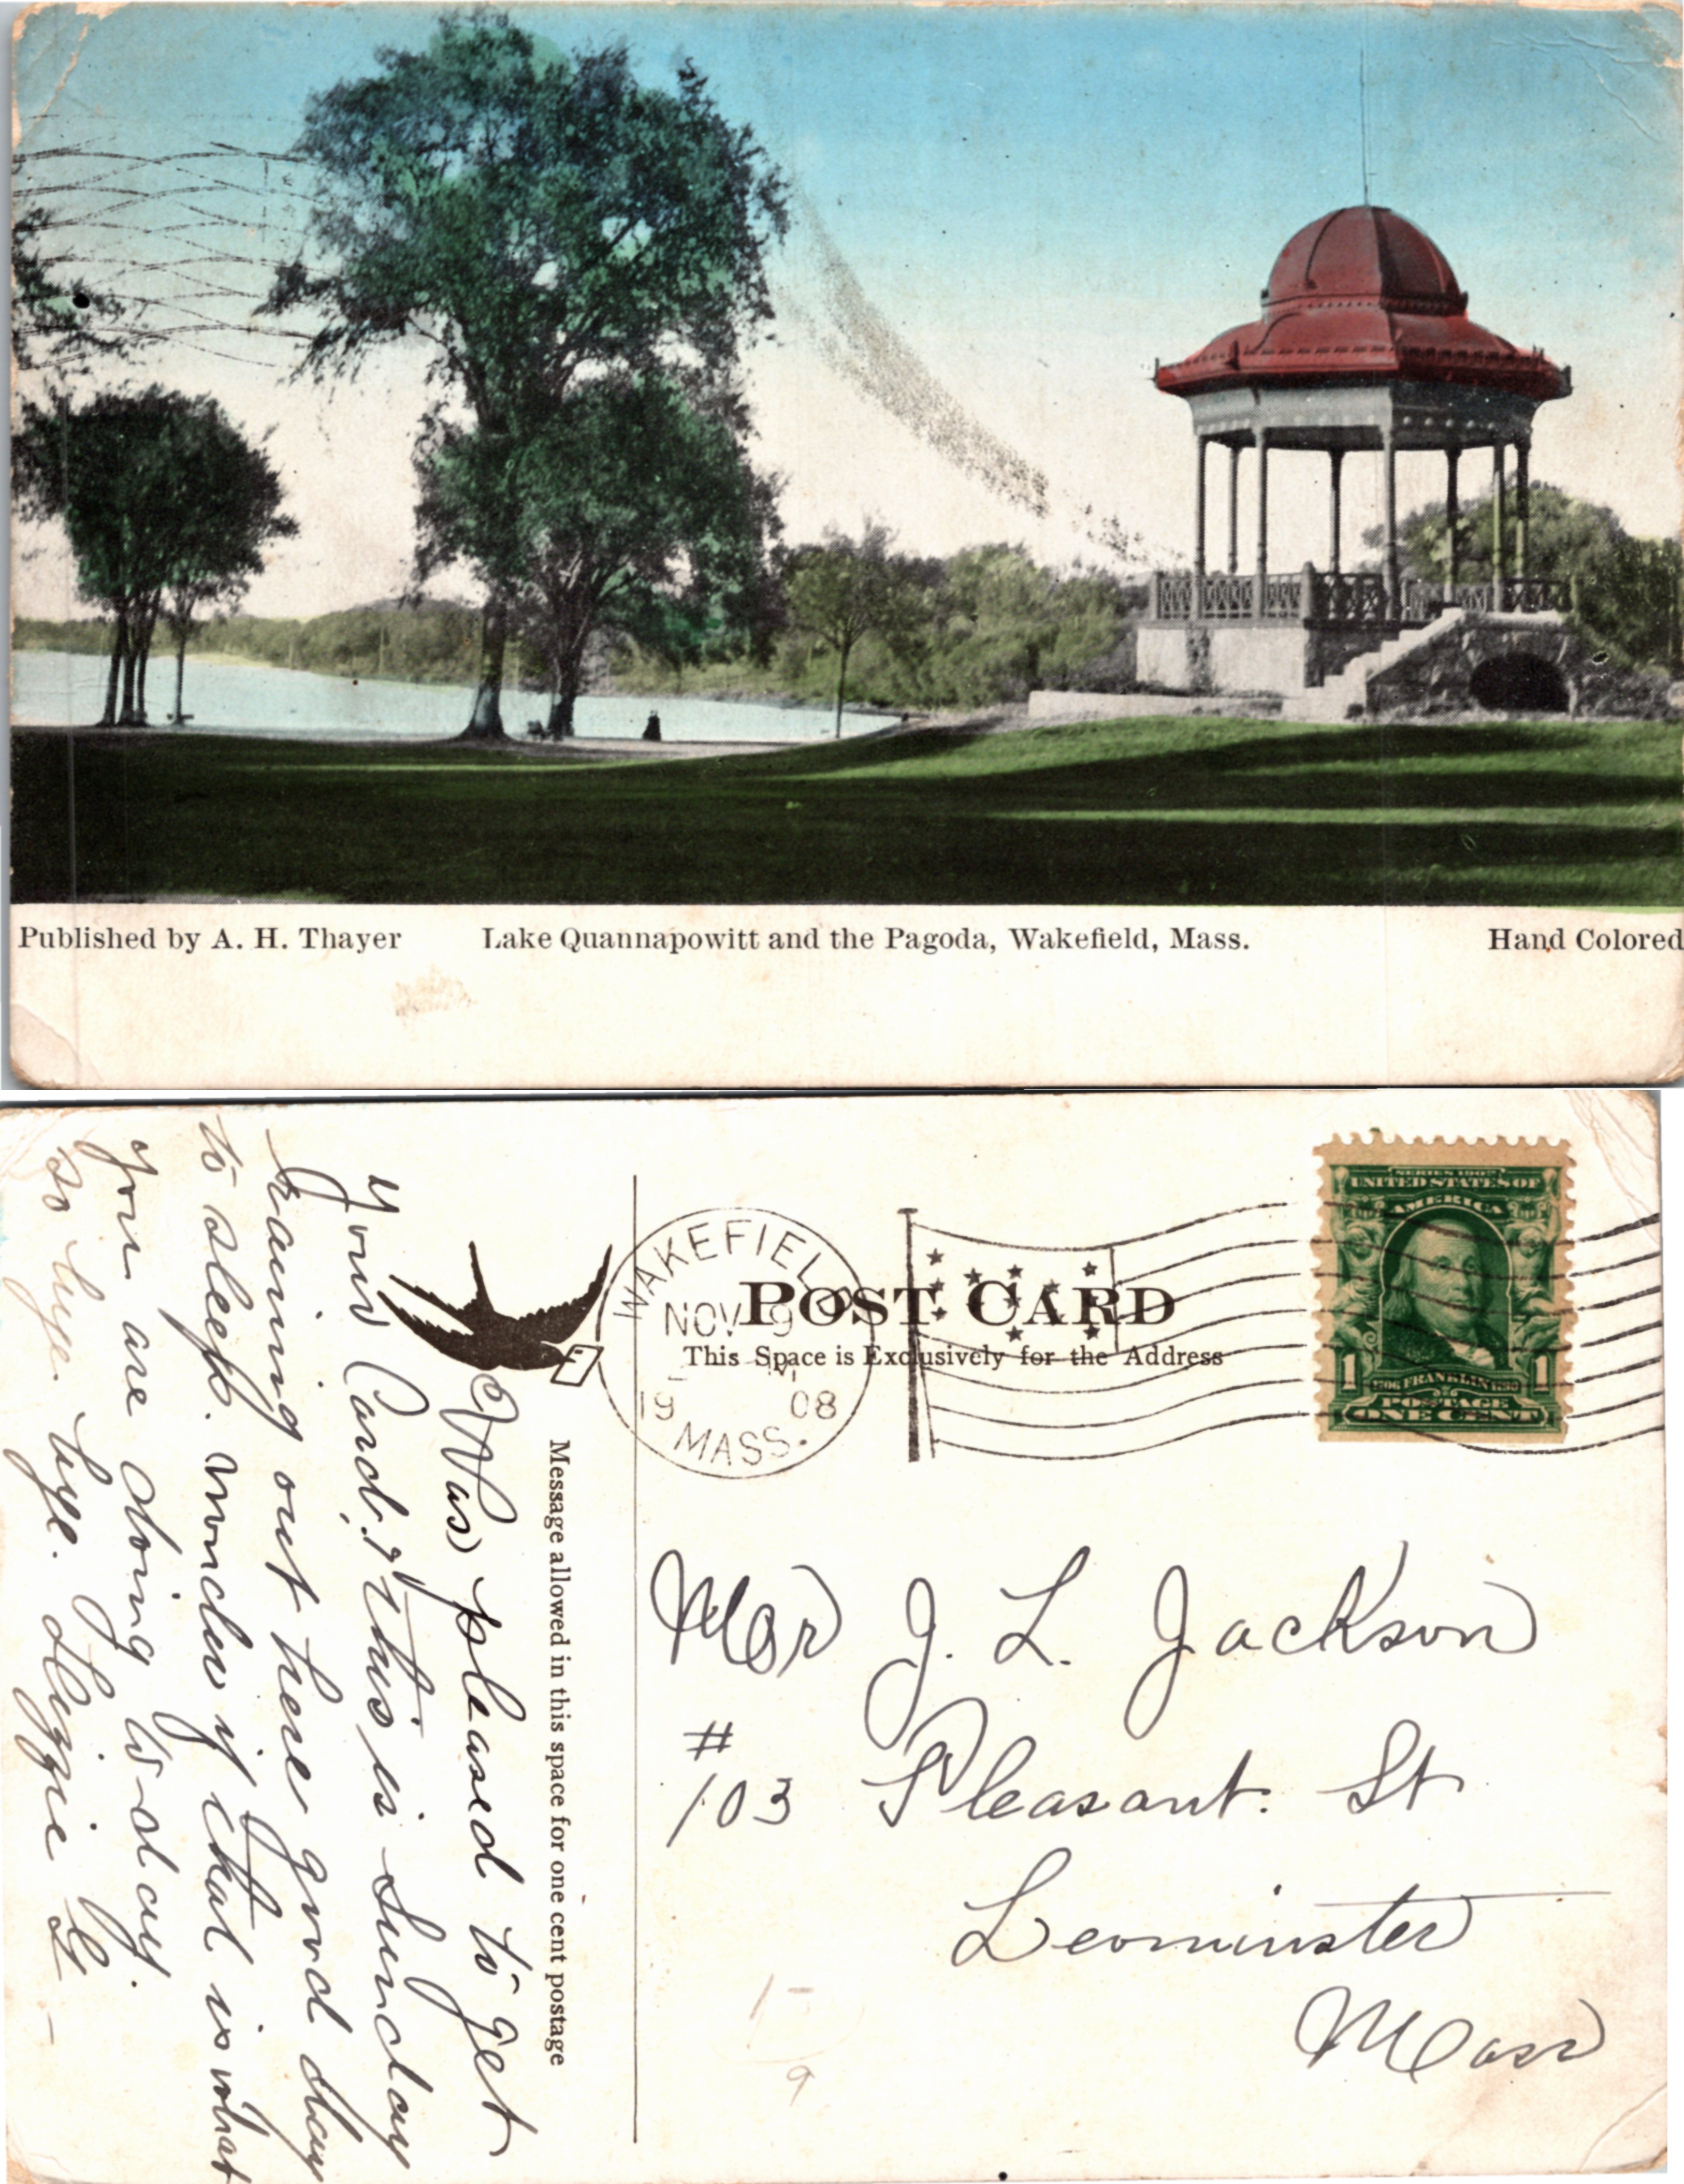 Published by A. H. Thayer
Lake Quannapowitt and the Pagoda, Wakefield, Mass.
Hand Colored
POST CARD
This Space is Exclusively for the Address
WAKEFIELD
NOV 9
19 08
MASS.
SERIES 1902
UNITED STATES OF
AMERICA
1706 FRANKLIN 1790
1 1
POSTAGE
ONE CENT
Message allowed in this space for one cent postage
Was pleased to get
your Card. This is Sunday
raining out here good day
to sleep. wonder if that is what
you are doing to-day.
so bye bye. Lizzie
Mr J. L. Jackson
#
103 Pleasant. St
Leominster
Mass
1-
9